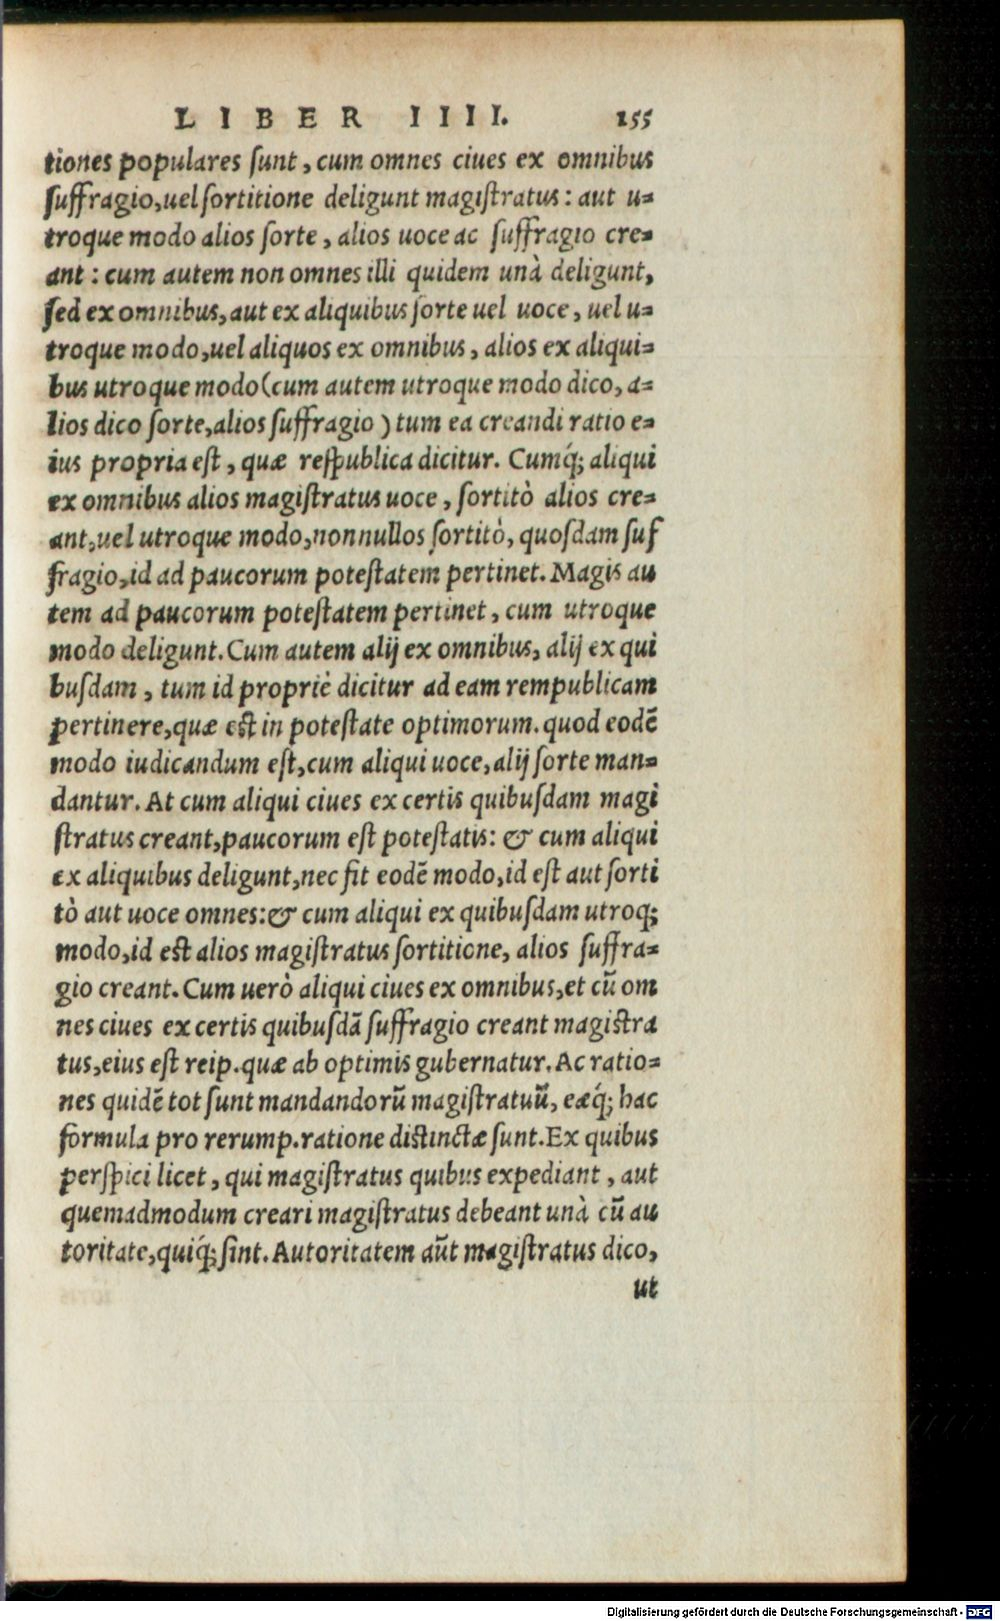 LIBER IIII. 155
tiones populares ſunt, cum omnes ciues ex omnibus
ſuffragio, uel ſortitione deligunt magiſtratus: aut u-
troque modo alios ſorte, alios uoce ac ſuffragio cre-
ant: cum autem non omnes illi quidem unà deligunt,
ſed ex omnibus, aut ex aliquibus ſorte uel uoce, uel u-
troque modo, uel aliquos ex omnibus, alios ex aliqui-
bus utroque modo (cum autem utroque modo dico, a-
lios dico ſorte, alios ſuffragio) tum ea creandi ratio e-
ius propria eſt, quæ reſpublica dicitur. Cumq́; aliqui
ex omnibus alios magiſtratus uoce, ſortitò alios cre-
ant, uel utroque modo, nonnullos ſortitò, quoſdam ſuf
fragio, id ad paucorum poteſtatem pertinet. Magis au
tem ad paucorum poteſtatem pertinet, cum utroque
modo deligunt. Cum autem alij ex omnibus, alij ex qui
buſdam, tum id propriè dicitur ad eam rempublicam
pertinere, quæ eſt in poteſtate optimorum. quod eodẽ
modo iudicandum eſt, cum aliqui uoce, alij ſorte man-
dantur. At cum aliqui ciues ex certis quibuſdam magi
ſtratus creant, paucorum eſt poteſtatis: & cum aliqui
ex aliquibus deligunt, nec fit eodẽ modo, id eſt aut ſorti
tò aut uoce omnes: & cum aliqui ex quibuſdam utroq;
modo, id eſt alios magiſtratus ſortitione, alios ſuffra-
gio creant. Cum uerò aliqui ciues ex omnibus, et cũ om
nes ciues ex certis quibuſdã ſuffragio creant magiſtra
tus, eius eſt reip. quæ ab optimis gubernatur. Ac ratio-
nes quidẽ tot ſunt mandandorũ magiſtratuũ, eæq́; hac
formula pro rerump. ratione diſtinctæ ſunt. Ex quibus
perſpici licet, qui magiſtratus quibus expediant, aut
quemadmodum creari magiſtratus debeant unà cũ au
toritate, quiq́; ſint. Autoritatem aũt magiſtratus dico,
ut
Digitalisierung gefördert durch die Deutsche Forschungsgemeinschaft - DFG